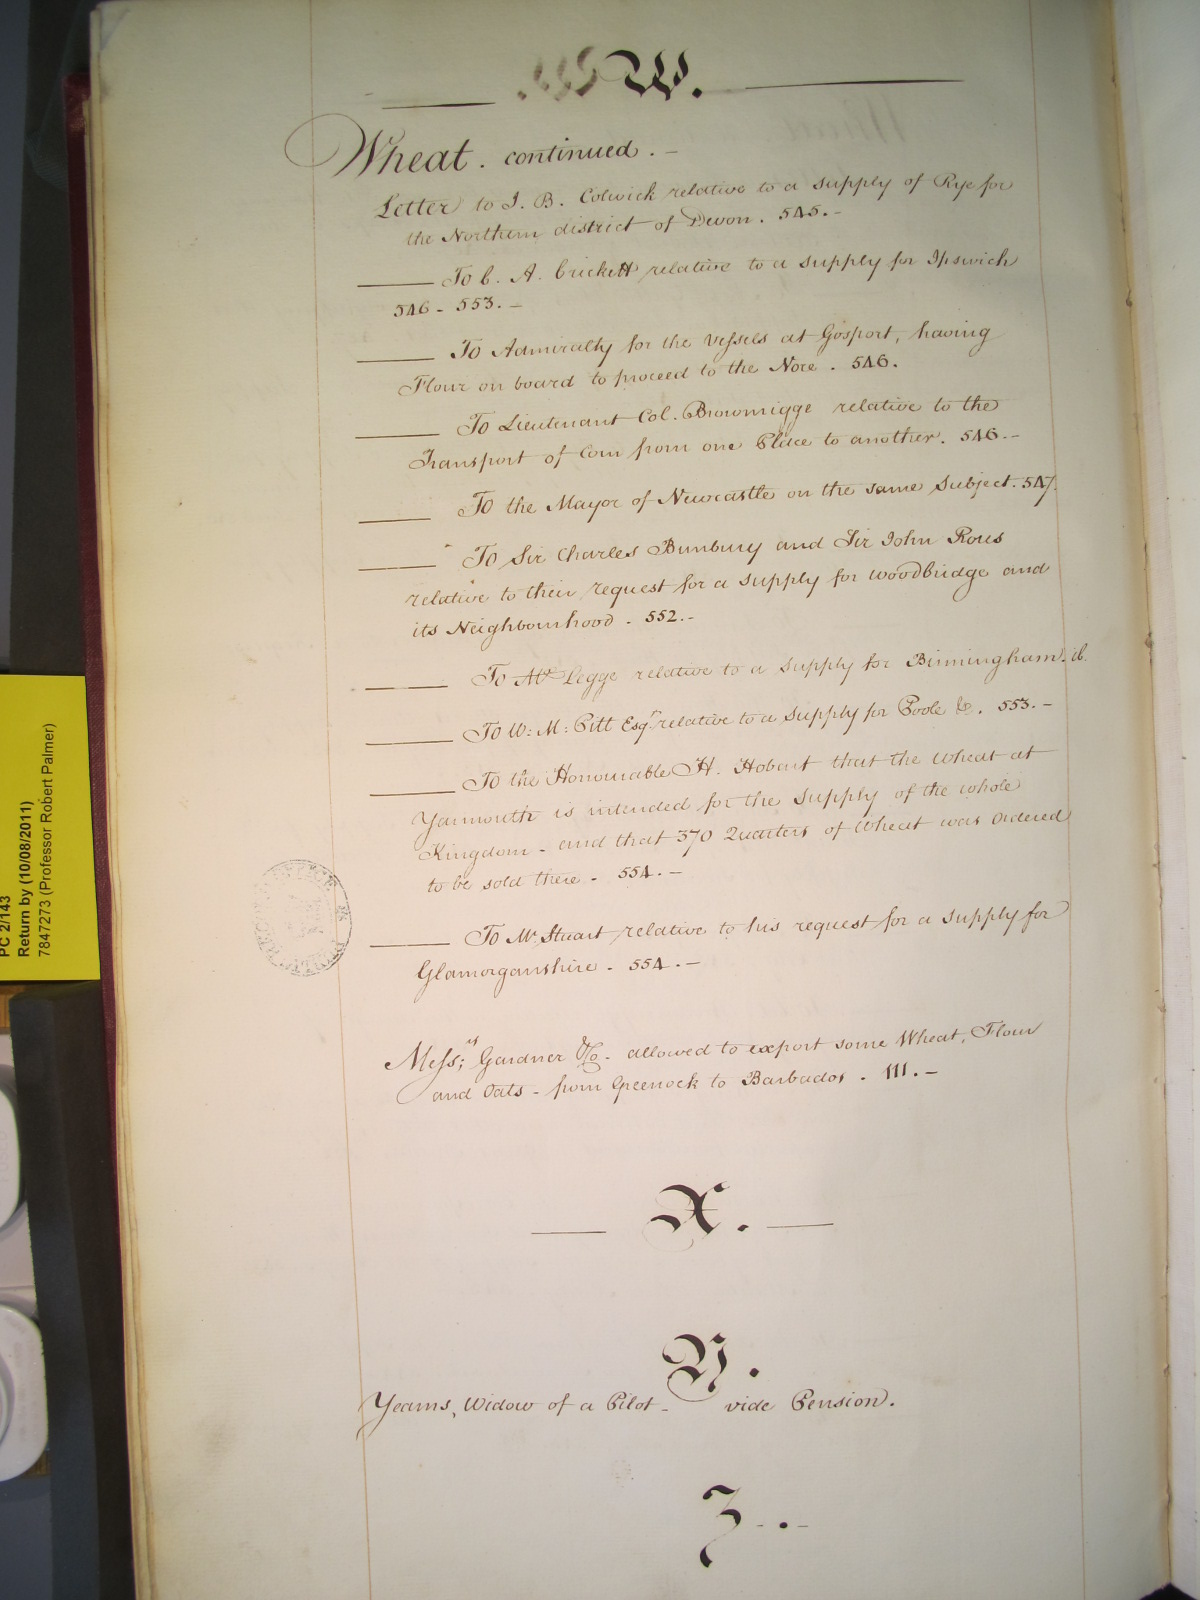 W.
Wheat. continued. -
Letter to J. B. Colwick relative to a supply of Rye for
the Northern district of Devon. 545. -
To C. A. Crickett relative to a supply for Ipswich
546 - 553. -
To Admiralty for the Vessels at Gosport, having
Flour on board to proceed to the Nore. 546.
To Lieutenant Col. Brownrigge relative to the
Transport of Corn from one Place to another. 546. -
To the Mayor of Newcastle on the same Subject. 547.
To Sir Charles Bunbury and Sir John Rous
relative to their request for a supply for Woodbridge and
its Neighbourhood. 552. -
To Mr Legge relative to a supply for Birmingham. ib.
To W: M: Pitt Esqr relative to a supply for Poole &c. 553. -
To the Honourable H. Hobart that the Wheat at
Yarmouth is intended for the supply of the whole
Kingdom - and that 370 Quarters of Wheat was ordered
to be sold there - 554. -
To Mr Stuart relative to his request for a supply for
Glamorganshire - 554. -
Messrs Gardner &Co. allowed to export some Wheat, Flour
and Oats - from Greenock to Barbados. 111. -
X.
Y.
Yeams, Widow of a Pilot - vide Pension.
Z.
PC 2/143
Return by (10/08/2011)
7847273 (Professor Robert Palmer)